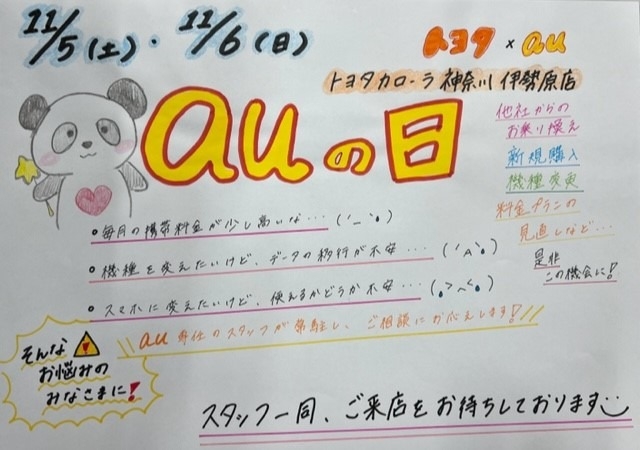 11/5(土)・11/6(日)
トヨタ×au
トヨタカローラ神奈川 伊勢原店
auの日
他社からの
お乗り換え
新規購入
機種変更
料金プランの
見直しなど…
是非
この機会に!
•毎月の携帯料金が少し高いな…
•機種を変えたいけど、データの移行が不安…
•スマホに変えたいけど、使えるかどうか不安…
au専任のスタッフが常駐し、ご相談にお応えします!
そんな
お悩みの
みなさまに!
スタッフ一同、ご来店をお待ちしております